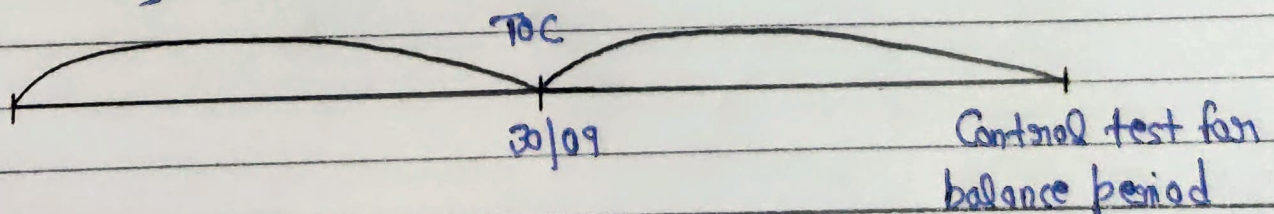 TOC
30/09
Control test for
balance period